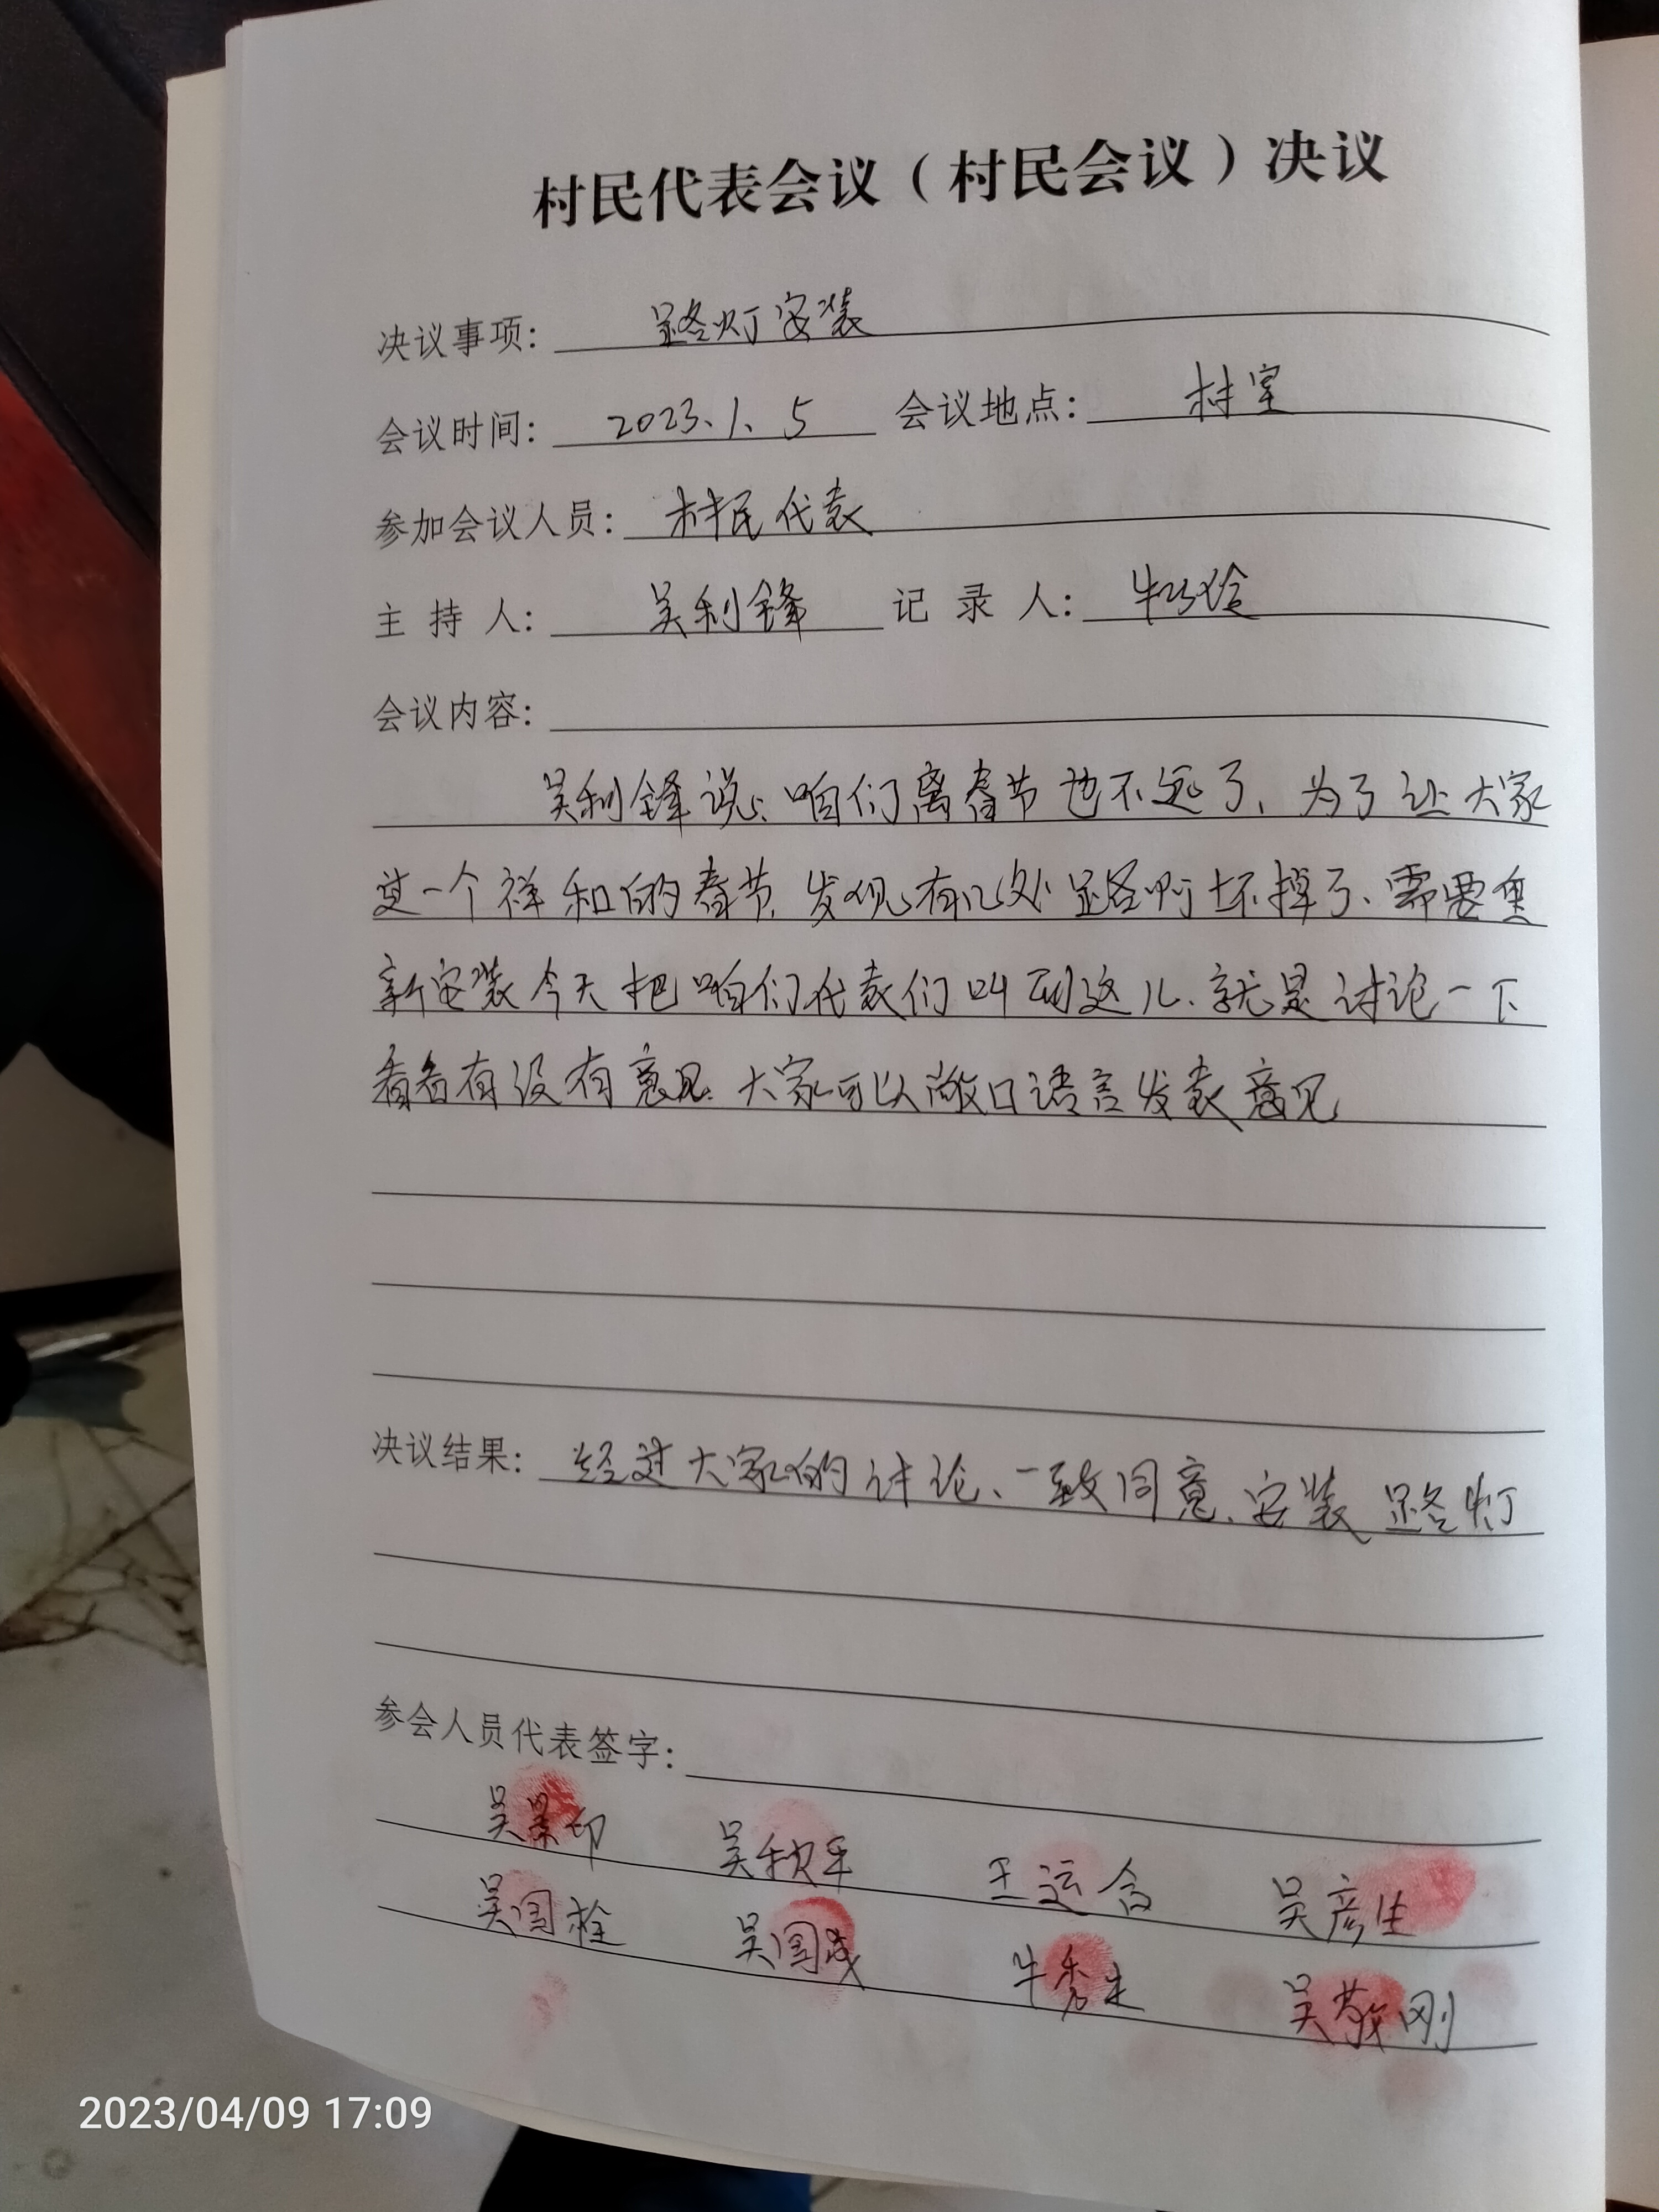 村民代表会议（村民会议）决议
决议事项： 路灯安装
会议时间： 2023、1、5 会议地点： 村室
参加会议人员： 村民代表
主 持 人： 吴利锋 记 录 人： 牛巧玲
会议内容：
吴利锋说：咱们离春节也不远了、为了让大家
过一个祥和的春节、发现有几处路灯坏掉了、需要重
新安装今天把咱们代表们叫到这儿、就是讨论一下
看看有没有意见、大家可以敞口语言发表意见
决议结果： 经过大家的讨论、一致同意、安装路灯
参会人员代表签字：
吴景印 吴秋平 王运合 吴彦生
吴国栓 吴国成 牛秀生 吴敬刚
2023/04/09 17:09